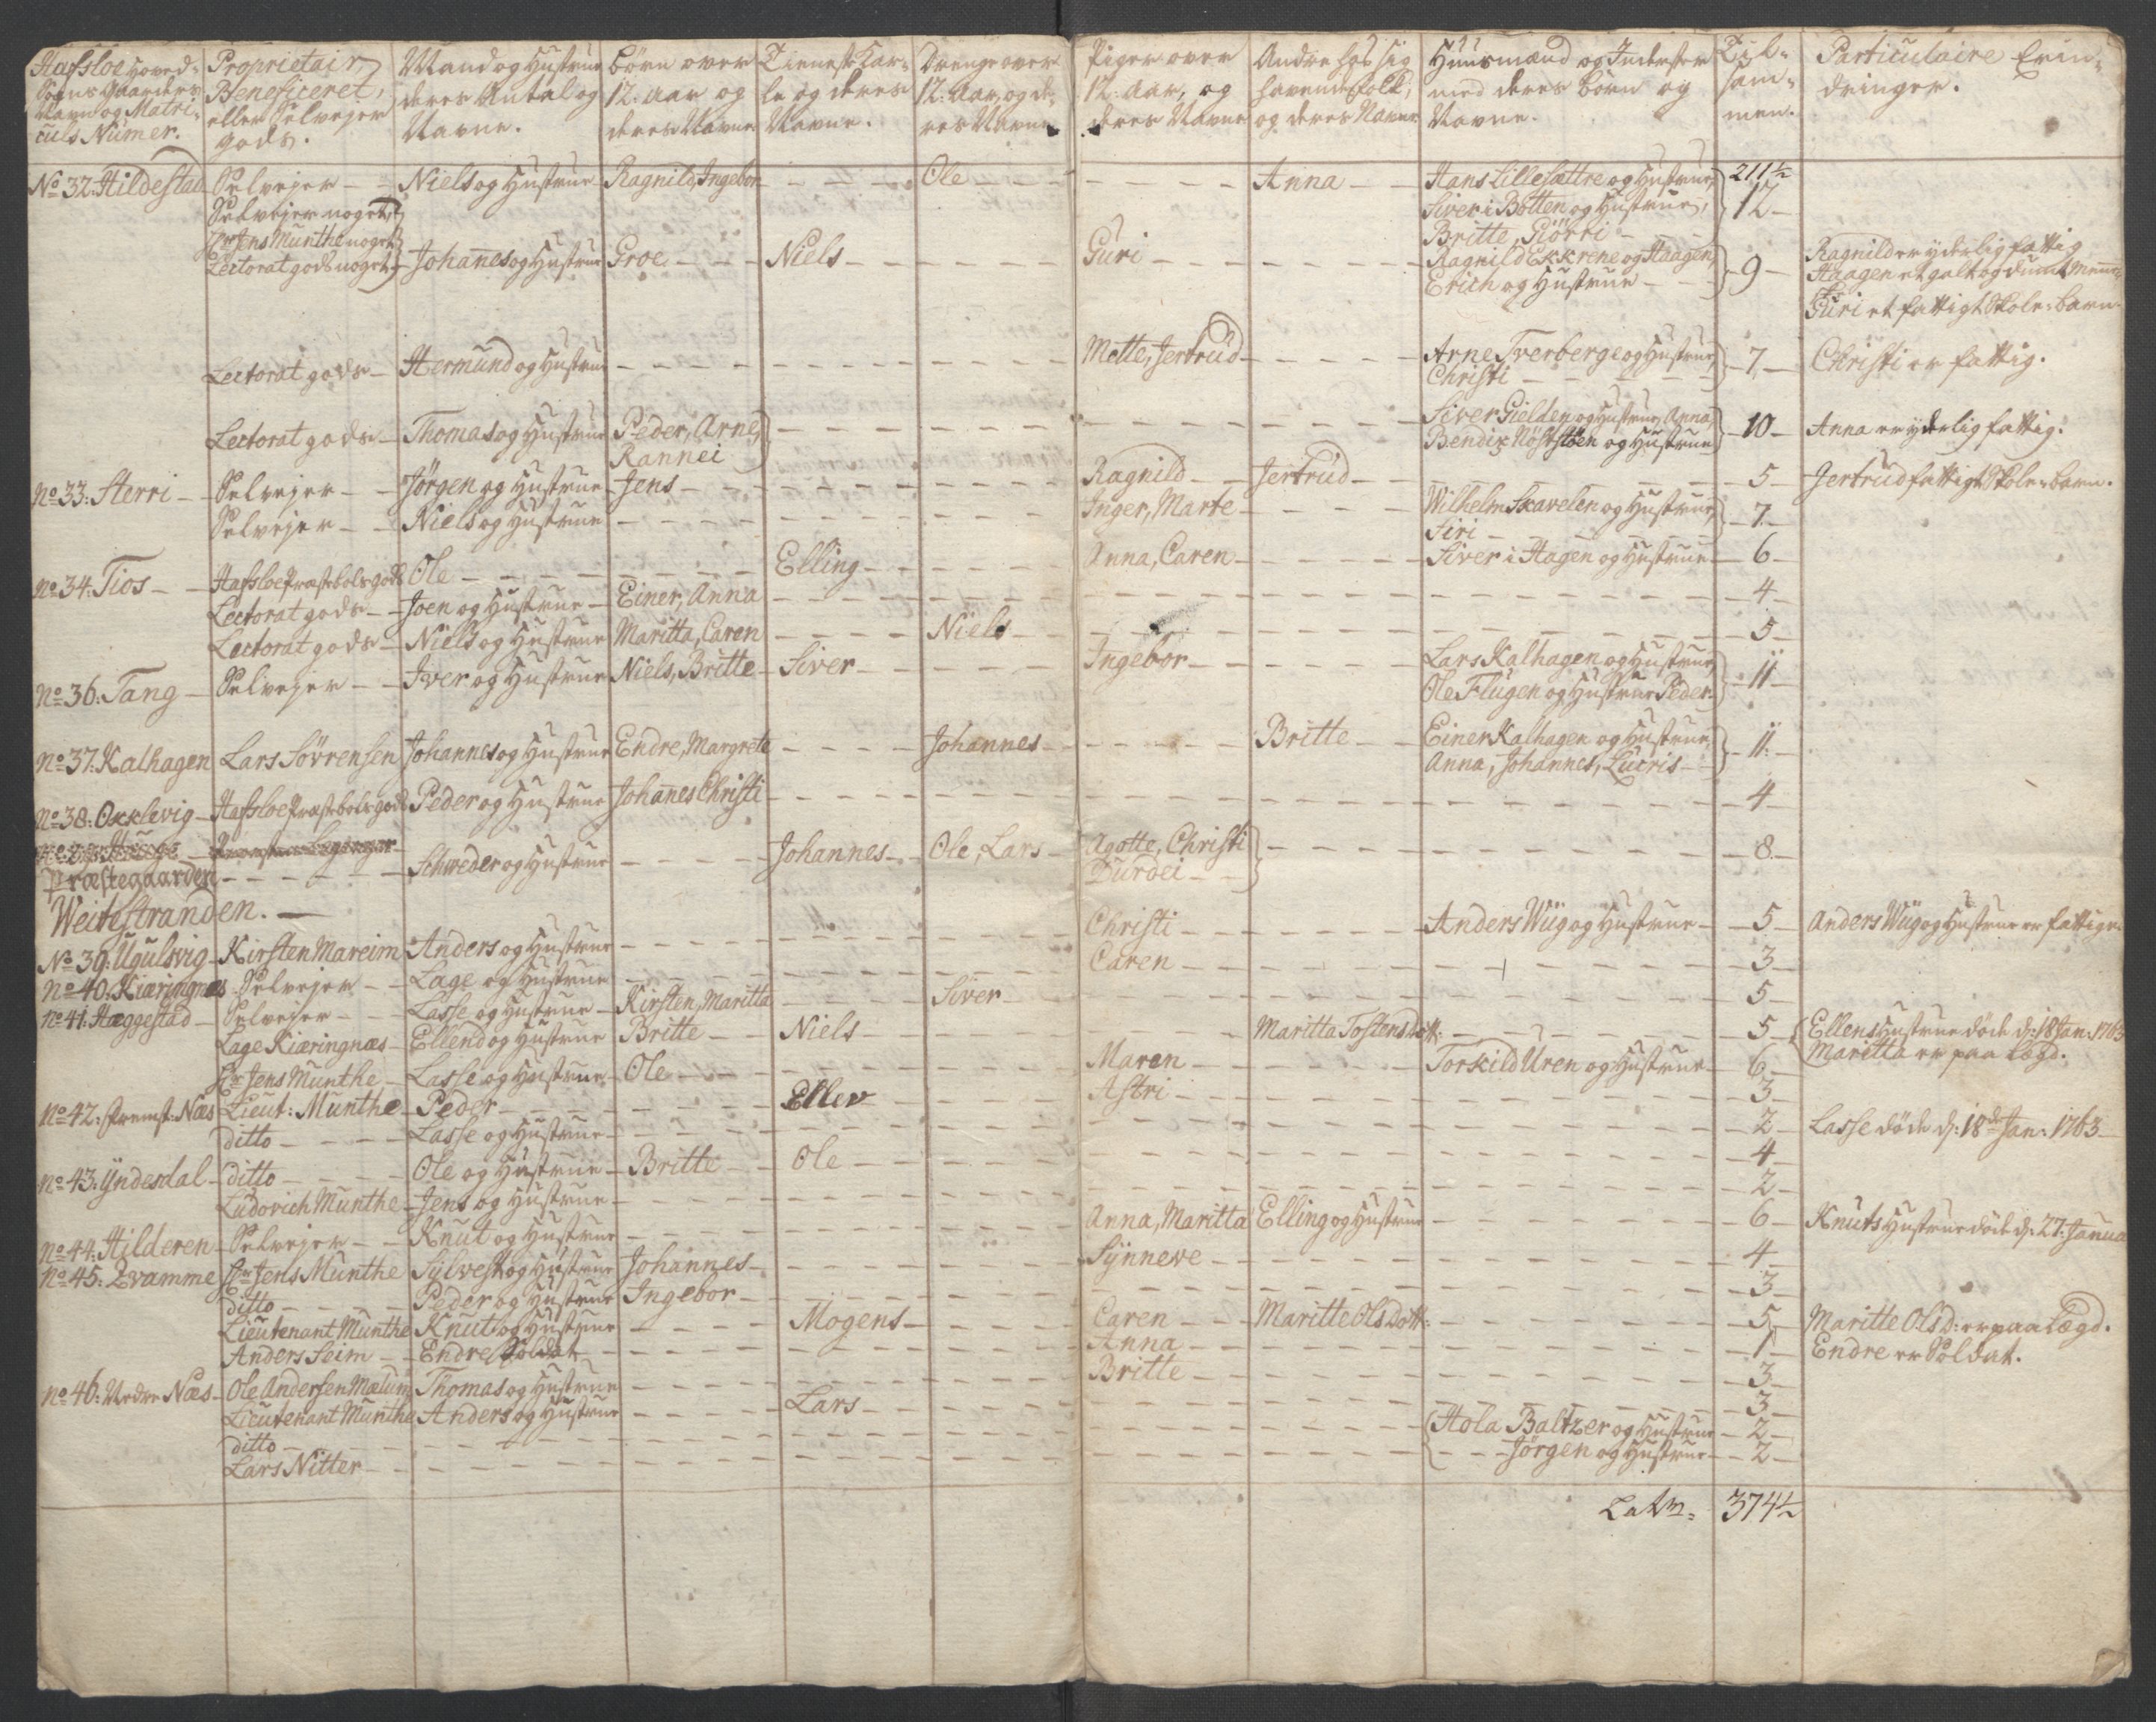 Hafsloe Hoved-
Sogns Gaarders
Navn og Matri-
culs Numer.
Proprietair,
Beneficeret,
eller Selvejer
gods.
Mand og Hustrue
deres Antal og
Navne.
Börn over
12: Aar og
deres Navne
Tieneste Kar-
le og deres
Navne.
Drenge over
12: Aar, og de-
res Navne
Piger over
12: Aar, og
deres Navne
Andre hos sig
havende Folk,
og deres Navne
Huusmænd og Inderster
med deres Börn og
Navne.
Til-
sam-
men.
Particulaire Erin-
dringer.
No 32: Hildestad Selvejer - Niels og Hustrue Ragnild, Ingebor - Ole - Anna - Hans Lillesættre og Hustrue, 211½
Selvejer noget, Siver i Botten og Hustrue, 12
Hr Jens Munthe noget Britte, Giörri
Lectorat gods noget Johannes og Hustrue Groe - Niels - Guri - Ragnild Ekkrene og Haagen, 9 Ragnild er yderlig fattig
Erich og Hustrue Haagen et galt og dumt Menne-
Guri et fattigt Skole-barn.
Lectorat gods - Hermund og Hustrue - Mette, Jertrud - Arne Tverberge og Hustrue, 7 Christi er fattig.
Christi
Lectorat gods - Thomas og Hustrue Peder, Arne, - Siver Gielden og Hustrue, Anna, 10 Anna er yderlig fattig.
Rannei Bendix Nöststöen og Hustrue
No 33: Herri - Selvejer - Jörgen og Hustrue - Jens - Ragnild - Jertrud - 5 Jertrud fattigt Skole-barn.
Selvejer - Niels og Hustrue - Inger, Marte - Wilhelm Skavelen og Hustrue, 7
Siri
No 34: Tios - Hafsloe Præstebols gods Ole - Elling - Anna, Caren - Siver i Hagen og Hustrue - 6
Lectorat gods - Joen og Hustrue - Einer, Anna - 4
Lectorat gods - Niels og Hustrue Maritta, Caren - Niels - 5
No 36: Tang - Selvejer - Iver og Hustrue Niels, Britte - Siver - Ingebor - Lars Kalhagen og Hustrue, 11
Ole Flugen og Hustrue Peder
No 37: Kalhagen Lars Sövrensen Johannes og Hustrue Endre, Margrete - Johannes - Britte - Einer Kalhagen og Hustrue, 11
Anna, Johannes, Lucris
No 38: Okklevig - Hafsloe Præstebols gods Peder og Hustrue Johannes Christi - 4
Præstegaarden - Schweder og Hustrue - Johannes - Ole, Lars - Agotte, Christi 8
Durdei
Weitestranden.
No 39: Ugulsvig - Kirsten Mareim Anders og Hustrue - Christi - Anders Wüg og Hustrue - 5 Anders Wüg og Hustrue er fattige
No 40. Kiæringnæs Selvejer - Lage og Hustrue - Caren - 3
No 41: Hæggestad - Selvejer - Lasse og Hustrue - Kirsten, Maritta - Siver - 5
Lage Kiæringnæs - Ellend og Hustrue Britte - Niels - Maritta Tostens Dott: - 5 Ellens Hustrue döde d: 18 Jan: 1763
Hr Jens Munthe - Lasse og Hustrue - Ole - Maren - Torkild Uren og Hustrue - 6 Maritta er paa Lægd.
No 42: fremst: Næs Lieut: Munthe - Peder - Ellev - Astri - 3
ditto - Lasse og Hustrue - 2 Lasse döde d: 18de Jan: 1763
No 43: Yndesdal - ditto - Ole og Hustrue - Britte - Ole - 4
Ludovich Munthe - Jens og Hustrue - 2
No 44: Hilderen - Selvejer - Knut og Hustrue - Anna, Maritta Elling og Hustrue - 6 Knuts Hustrue döde d: 27: Janua
No 45: Qvamme Hr Jens Munthe Sylvest og Hustrue Johannes - Synneve - 4
ditto - Peder og Hustrue Ingebor - 3
Lieutenant Munthe Knut og Hustrue - Mogens - Caren - Maritte Ols Dott: - 5 Maritte Olsd: er paa Lægd.
Anders Seim - Endre Soldat - Anna - 1 Endre er Soldat.
No 46: Nedre Næs - Ole Andersen Mælum Thomas og Hustrue - Britte - 3
Lieutenant Munthe Anders og Hustrue - Lars - 3
ditto - Hola Baltzer og Hustrue - 2
Lars Nitter - Jörgen og Hustrue - 2
Latus 374½